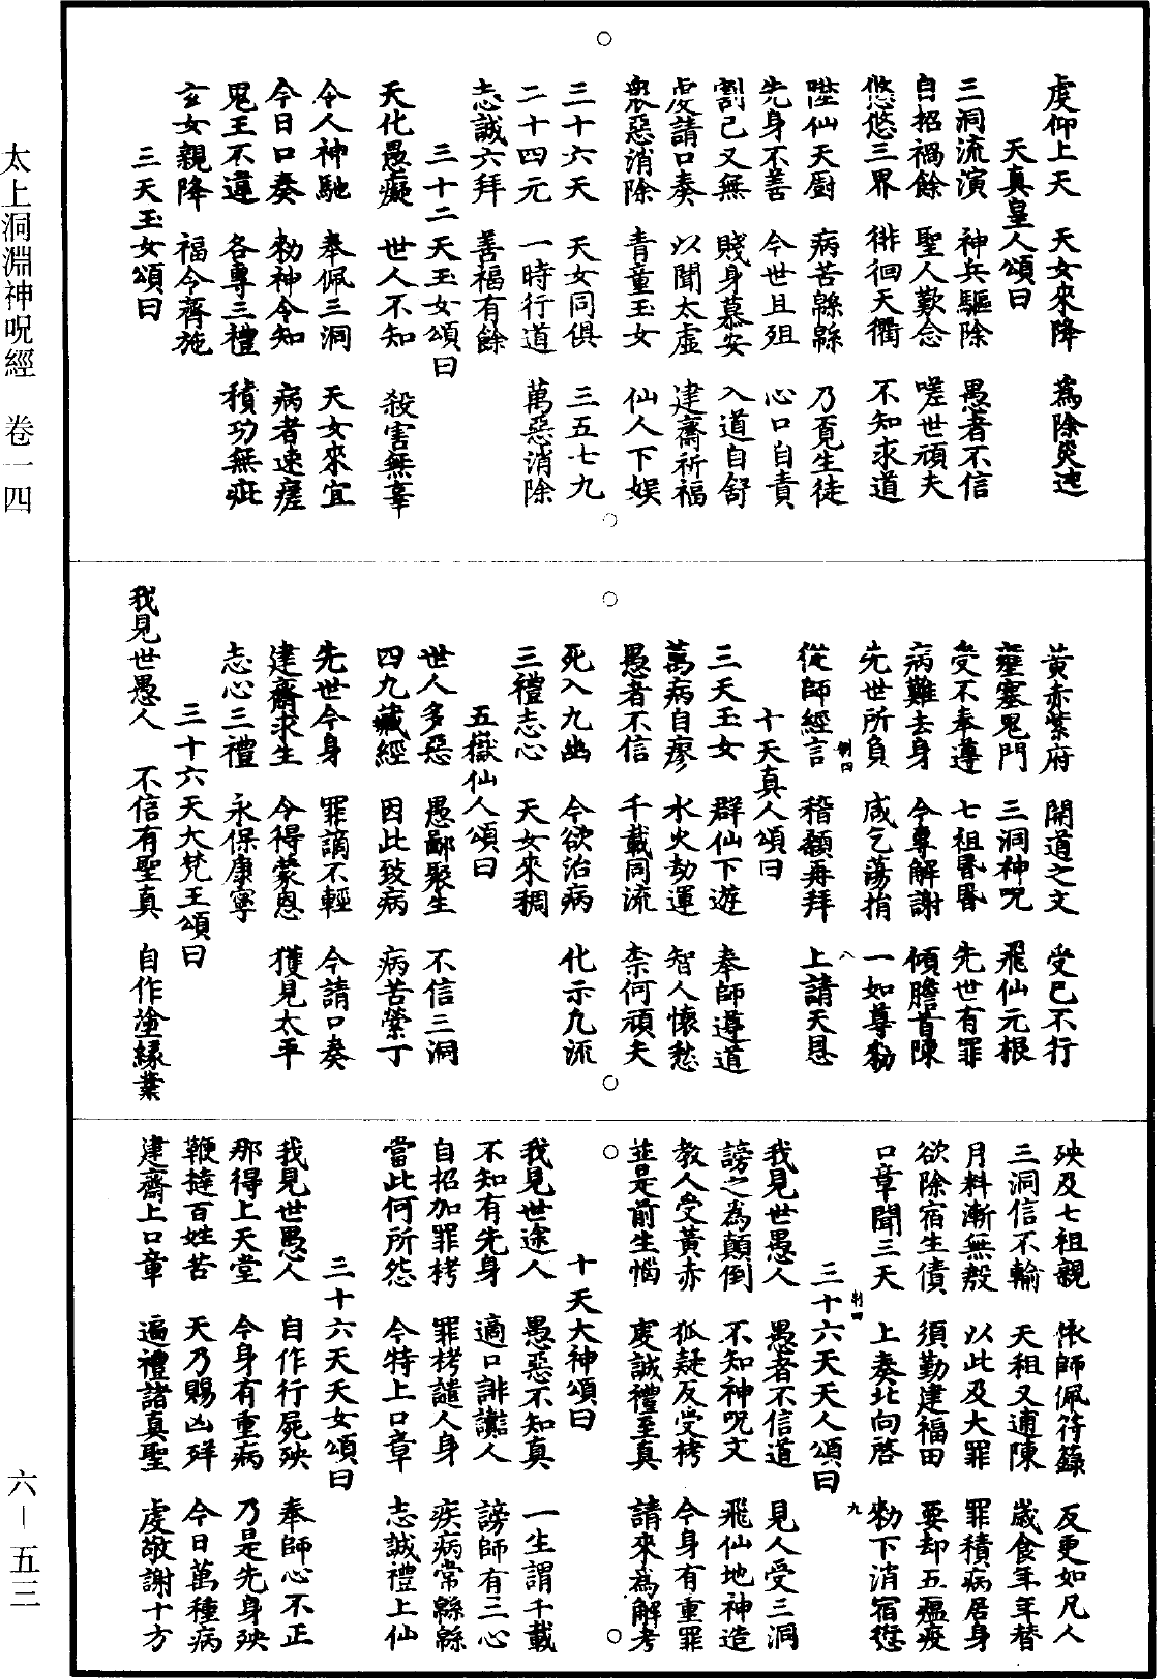 太上洞淵神呪經　卷一四
六－五三
虔仰上天　天女來降　為除災速
天真皇人頌曰
三洞流演　神兵驅除　愚者不信
自招禍餘　聖人歎念　嗟世頑夫
悠悠三界　徘徊天衢　不知求道
陞仙天廚　病苦緜緜　乃覓生徒
先身不善　今世且殂　心口自責
割己又無　賤身慕安　入道自舒
虔請口奏　以聞太虛　建齋祈福
衆惡消除　青童玉女　仙人下娛
三十六天　天女同俱　三五七九
二十四元　一時行道　萬惡消除
志誠六拜　善福有餘
三十二天玉女頌曰
天化愚癡　世人不知　殺害無辜
令人神馳　奉佩三洞　天女來宜
今日口奏　勑神令知　病者速瘥
鬼王不違　各專三禮　積功無疵
玄女親降　福令齊施
三天玉女頌曰
黃赤紫府　開道之文　受已不行
壅塞鬼門　三洞神呪　飛仙元根
受不奉遵　七祖昬昬　先世有罪
病難去身　今專解謝　傾膽首陳
先世所負　咸乞蕩捐　一如尊勑
從師經言　稽顙再拜　上請天恩
十天真人頌曰
三天玉女　群仙下遊　奉師導道
萬病自廖　水火劫運　智人懷愁
愚者不信　千載同流　柰何頑夫
死入九幽　今欲治病　化示九流
三禮志心　天女來稠
五嶽仙人頌曰
世人多惡　愚鄙聚生　不信三洞
四九藏經　因此致病　病苦縈丁
先世今身　罪謫不輕　今請口奏
建齋求生　今得蒙恩　獲見太平
志心三禮　永保康寧
三十六天大梵王頌曰
我見世愚人　不信有聖真　自作塗緣業
殃及七祖親　依師佩符籙　反更如凡人
三洞信不輸　天租又逋陳　歲食年年替
月料漸無敖　以此及大罪　罪積病居身
欲除宿生債　須勤建福田　要却五瘟疫
口章聞三天　上奏北向啓　勑下消宿愆
三十六天天人頌曰
我見世愚人　愚者不信道　見人受三洞
謗之為顛倒　不知神呪文　飛仙地神造
教人受黃赤　狐疑反受栲　今身有重罪
並是前生惱　虔誠禮至真　請來為解考
十天大神頌曰
我見世途人　愚惡不知真　一生謂千載
不知有先身　適口誹讟人　謗師有三心
自招加罪栲　罪栲譴人身　疾病常緜緜
當此何所怨　今特上口章　志誠禮上仙
三十六天天女頌曰
我見世愚人　自作行屍殃　奉師心不正
那得上天堂　今身有重病　乃是先身殃
鞭撻百姓苦　天乃賜凶殃　今日萬種病
建齋上口章　遍禮諸真聖　虔敬謝十方